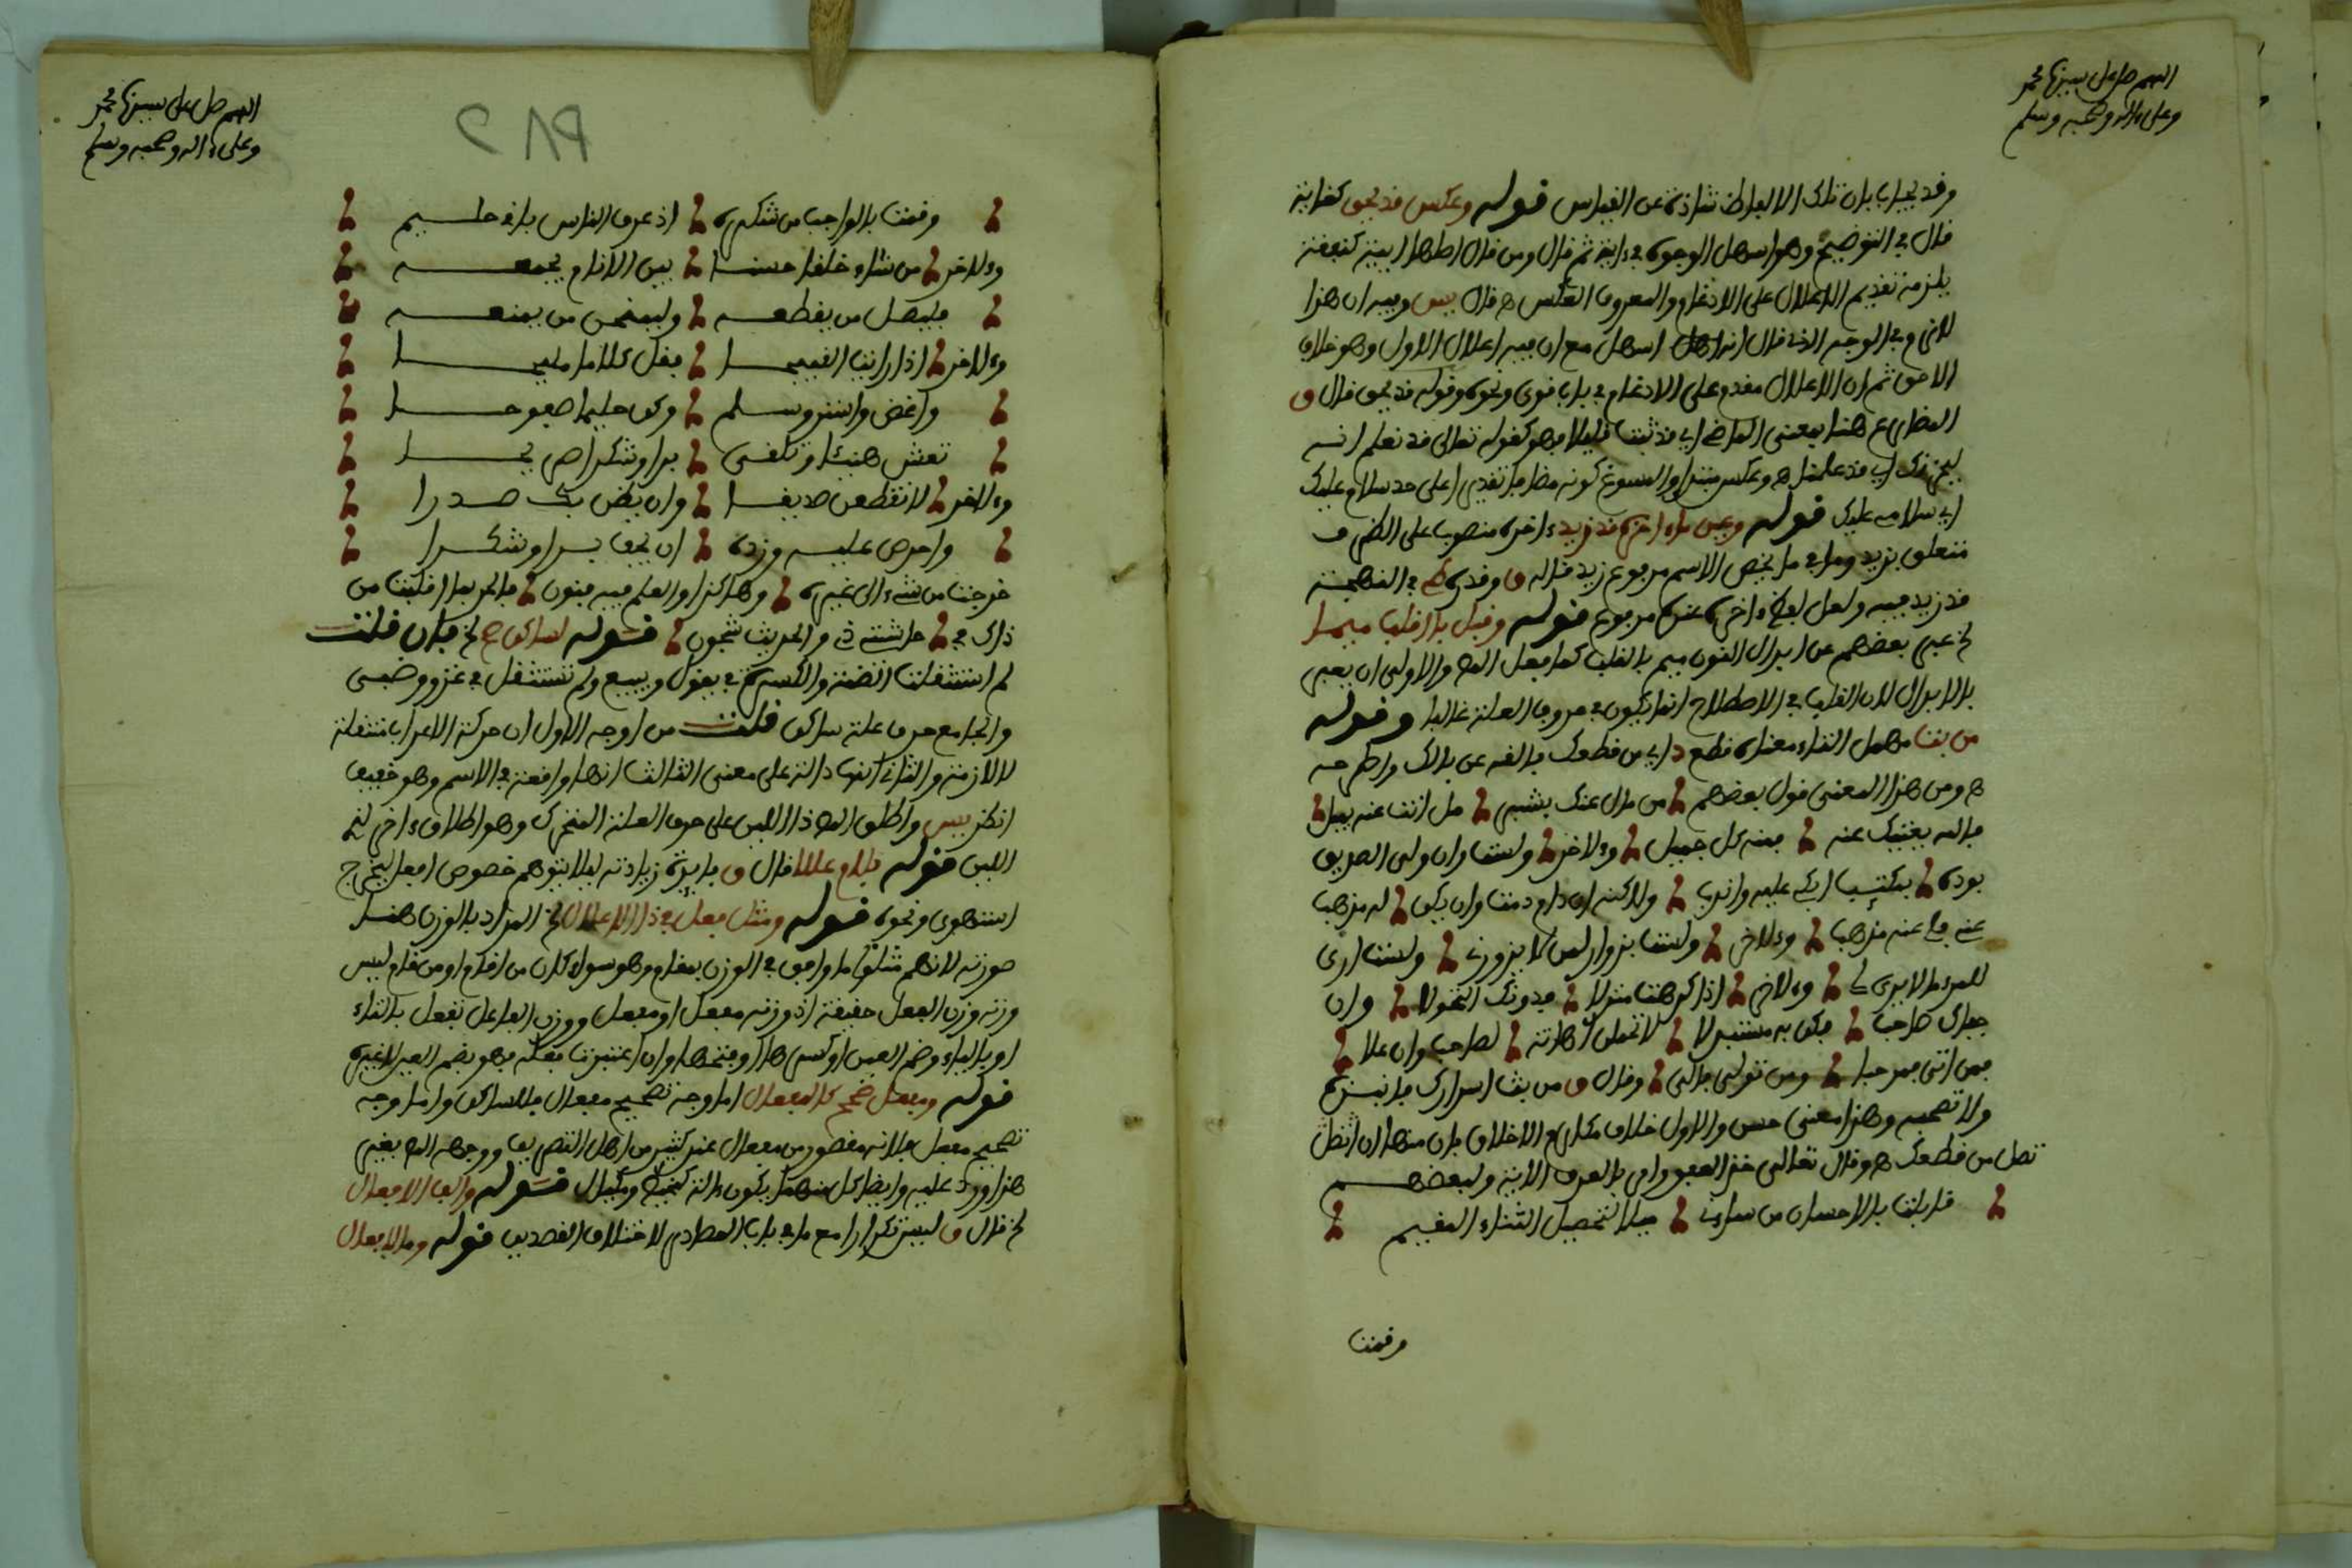 اللهم صل على سيدنا محمد
وعلى ءاله وصحبه وسلم
وقد يجاب بان تلك الالفاظ شاذة عن القياس قوله وعكس قد يحق كغاية
قال في التوضيح وهو اسهل الوجوه في ءاية ثم قال ومن قال اصلها ايية كنبقة
يلزمه تقديم الاعلال على الادغام والمعروف العكس ه قال يس وفيه ان هذا
لازم في الوجه الذي قال انه اسهل مع ان فيه اعلال الاول وهو خلاف
الاحق ثم ان الاعلال مقدم على الادغام في باب قوي ونحوه وقوله قد يحق قال
المضارع هنا بمعنى الماضي اي قد ثبت قليلا فهو كقوله تعالى قد نعلم انه
ليحزنك اي قد علمنا ه وعكس مبتدا والمسوغ كونه مضافا تقديرا على حد سلام عليك
اي سلامي عليك قوله وعين ما ءاخره قد زيد ءاخره منصوب على الظرف
متعلق بزيد وما في ما يخص الاسم مرفوع زيد قاله
قد زيد فيه ولعل مرفوع قوله وقبل با اقلب ميما
الخ عبر بعضهم عن ابدال النون ميم بالقلب كما فعل المص والاولى ان يعبر
بالابدال لان القلب في الاصطلاح انما يكون في حروف العلة غالبا وقوله
من بت مهمل التاء معناه قطع اي من قطعك فالقه عن بالك واطرحه
ه ومن هذا المعنى قول بعضهم من مال عنك بشبر مل انت عنه بميل
فالله يغنيك عنه بمنه كل جميل وءلاخر ولست وان ولى الصديق
بوده بمكتئب ابكي عليه واندب ولاكنه ان دام دمت وان يكن له مذهب
عني فلي عنه مذهب وءلاخر ولست بزوار لمن لا يزورني ولست ارى
للمرء ما لا يرى لي وءلاخر اذا كرهت منزلا فدونك التحولا وان
جفاك صاحب فكن به مستبدلا لا تحملن اهانة لصاحب وان علا
فمن اتى فمرحبا ومن تولى فالى وقال من بث اسرارك فانبذه
ولا تصحبه وهذا معنى حسن والاول خلاف مكارم الاخلاق فان منها ان
تصل من قطعك ه وقال تعالى خذ العفو وامر بالعرف الاية ولبعضهم
قابلت بالاحسان من ساءني ميلا لتحصيل الثناء المقيم
وقمت
اللهم صل على سيدنا محمد
وعلى ءاله وصحبه وسلم
وقمت بالواجب من شكره اذ عرف الناس باني حليم
وءلاخر من شاء خلقا حسنا بين الانام يجمعه
فليصل من يقطعه وليمنحن من يمنعه
وءلاخر اذا رايت القبيحا فقل كلاما مليحا
واغض واستر وسلم وكن حليما صفوحا
تعش هنيئا وتلقى برا وشكرا صريحا
وءلاخر لا تقطعن صديقا وان يضق بك صدرا
واحرص عليه وزده ان يجف برا وشكرا
خرجت من شيء الى غيره وهاكذا والعلم فيه فنون
ذاك في حاشيته ذي والحديث شجون قوله لساكن صح الخ فان قلت
لم استثقلت الضمة والكسرة في يقول ويبيع ولم تستثقل في غزو وضبي
والجامع حرف علة ساكن قلت من اوجه الاول ان حركة الاعراب منتقلة
لا لازمة والثاني انها دالة على معنى الثالث انها واقعة في الاسم وهو خفيف
انظر يس واطلق المص ذا اللين على حرف العلة المتحرك وهو اطلاق ءاخر لذي
اللين قوله بلام عللا قال فايدة زيادته ليلا يتوهم خصوص افعل ليخرج
استهوى ونحوه قوله ومثل فعل في ذا الاعلال الخ المراد بالوزن هنا
صورته لانهم مثلوا ما وافق في الوزن بمقام وهو سواء كان من اقام او من قام ليس
وزنه وزن الفعل حقيقة اذ وزنه مفعل او مفعل ووزن الفاعل تفعل بالتاء
او بالياء وضم العين او كسرها او فتحها وان اعتبرت مفعلة فهو بضم العين لا غير
قوله ومفعل صحح كالمفعال اما وجه تصحيح مفعال فالساكن واما وجه
تصحيح مفعل فلانه مقصور من مفعال عند كثير من اهل التصريف ووجهه المص بغير
هذا ورد عليه وايضا كل منهما يكون ءالة كمخيط ومكيال قوله والف الافعال
الخ قال ليس تكرارا مع ما في باب المصادر لاختلاف القصدين قوله وما لافعال